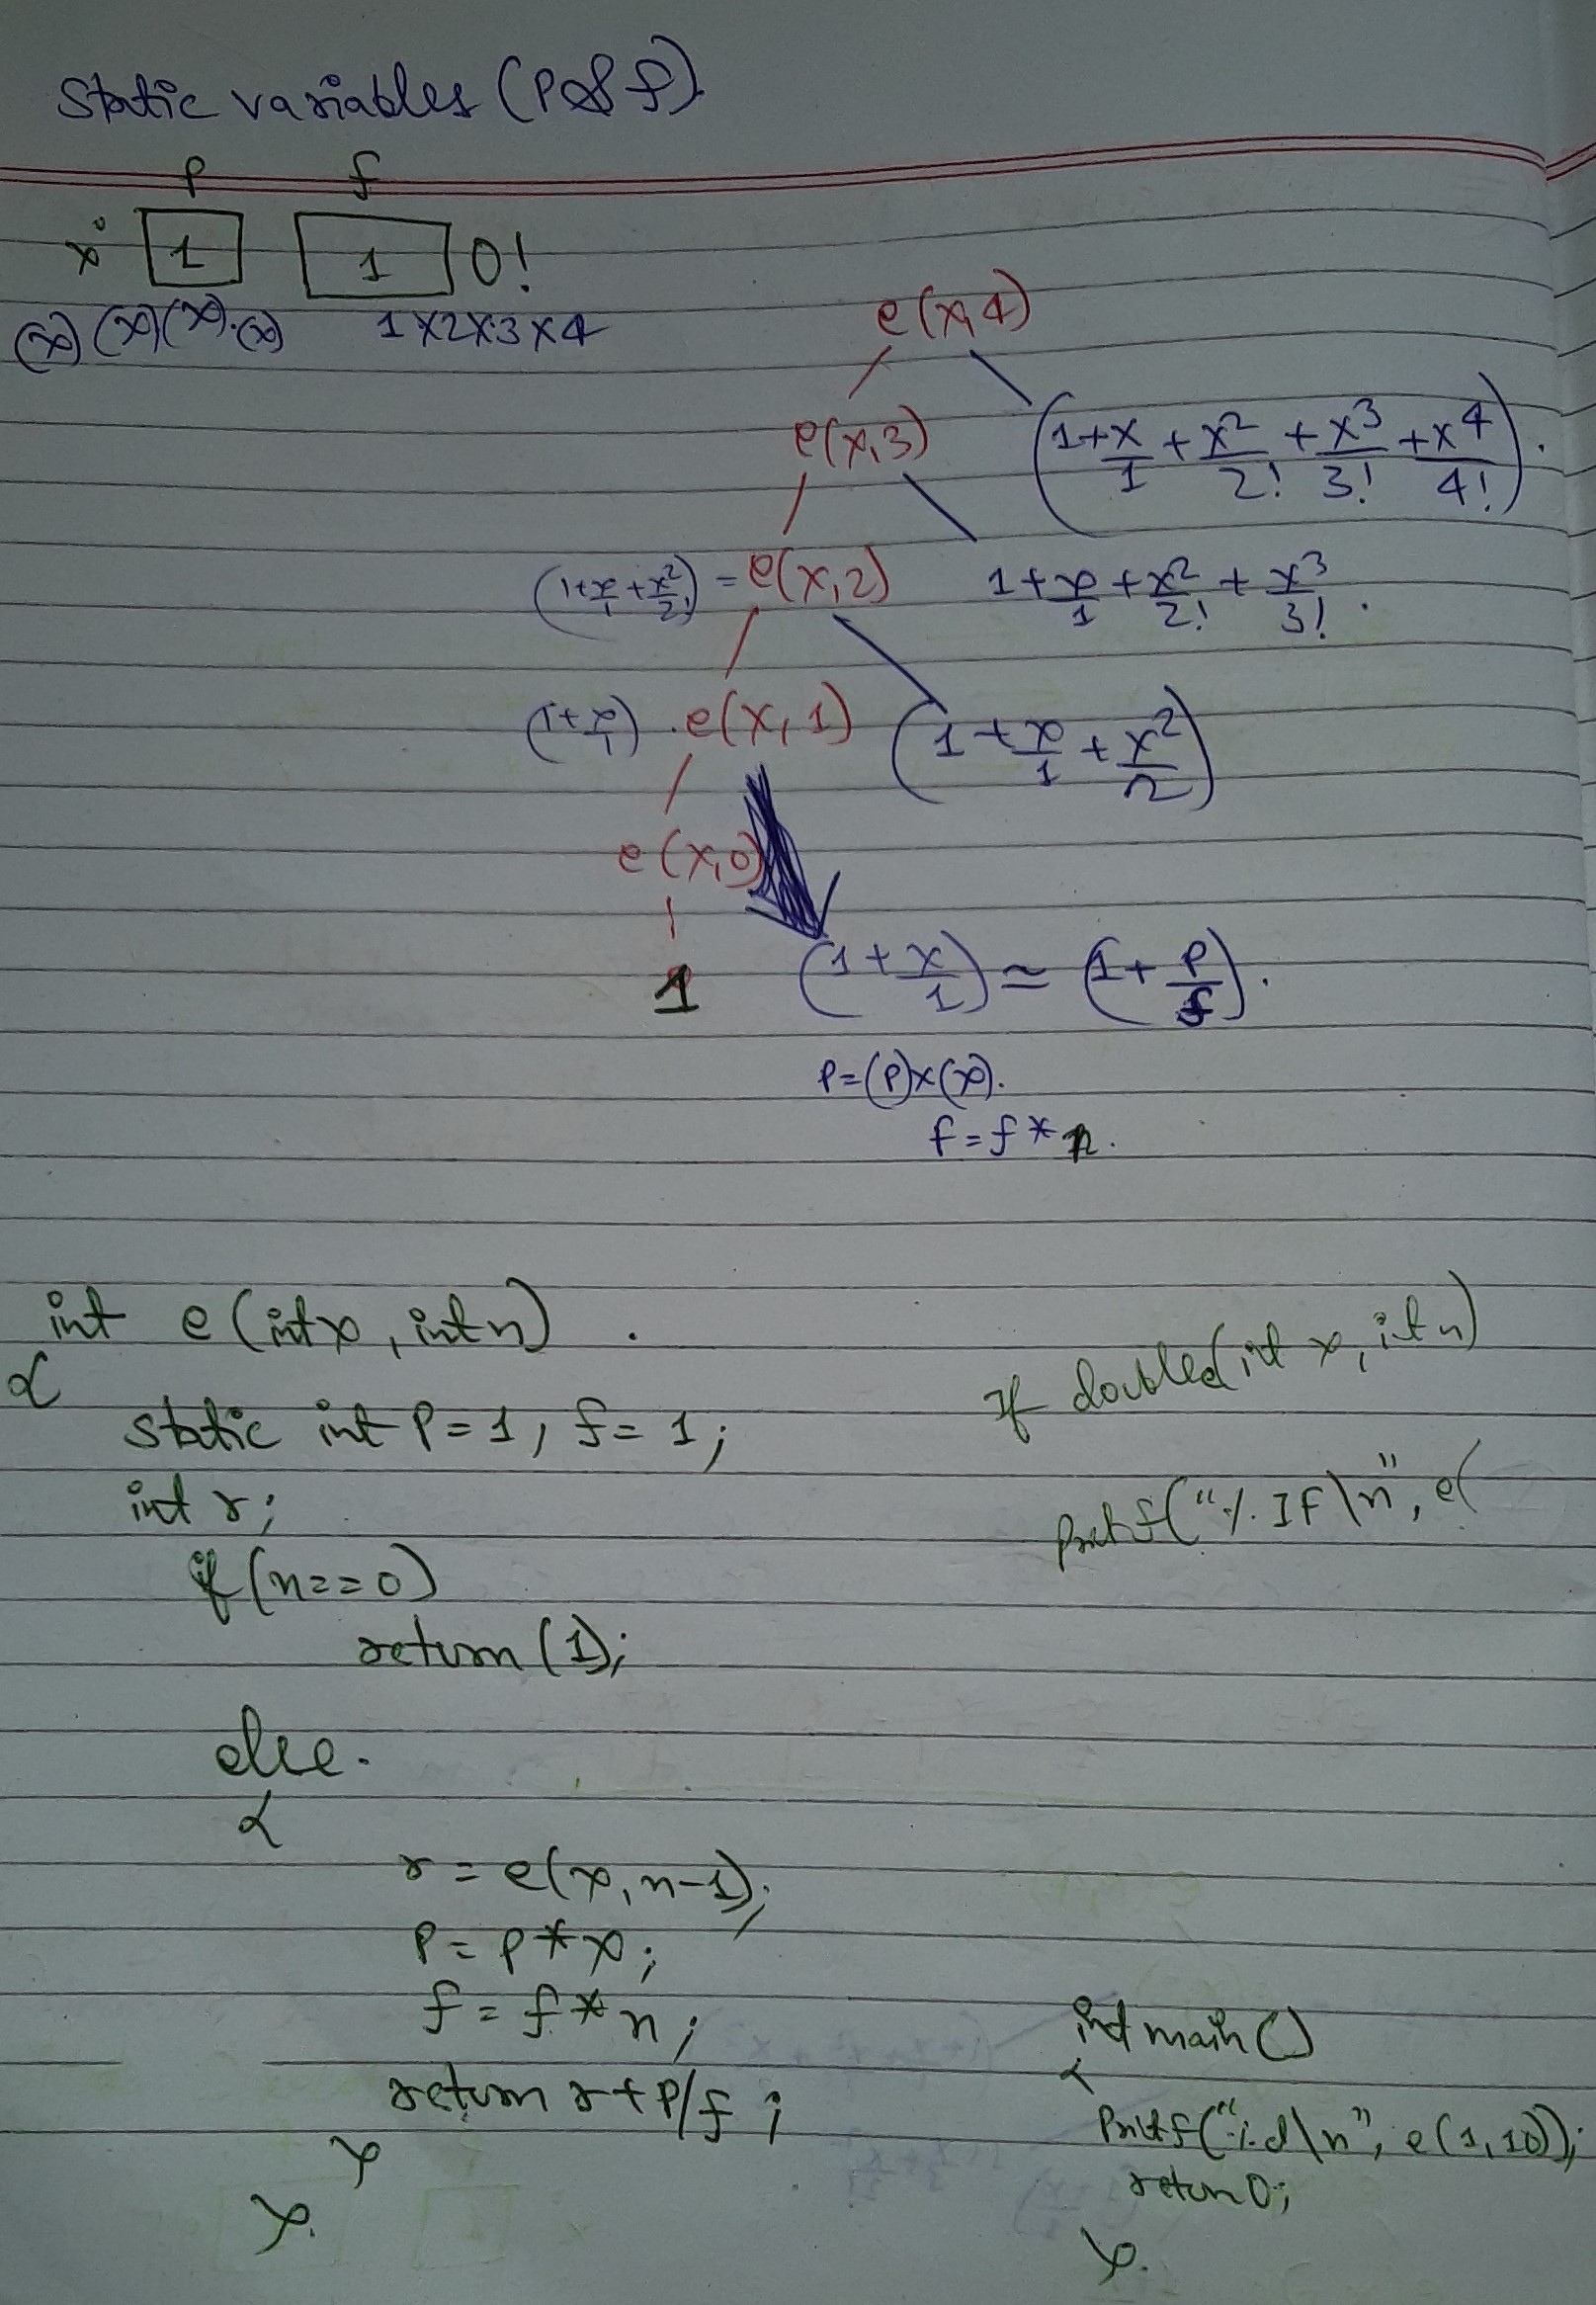 Static variables (P & f)
P f
x° 1 1 0!
(x) (x) (x).(x) 1x2x3x4
e(x,4)
e(x,3) (1+x/1 + x²/2! + x³/3! + x⁴/4!).
(1+x/1+x²/2!) = e(x,2) 1+x/1 + x²/2! + x³/3!.
(1+x/1) . e(x,1) (1+x/1 + x²/2)
e(x,0)
1 (1+x/1) ≈ (1+P/f).
P=(P)x(x).
f=f*n.
int e(int x, int n) .
{
static int P=1, f=1;
int r;
if(n==0)
return(1);
else.
{
r=e(x,n-1);
P=P*x;
f=f*n;
return r+P/f;
}
}.
If double(int x, int n)
Printf("%.If\n", e(
int main()
{
Printf("%d\n", e(1,10));
return 0;
}.